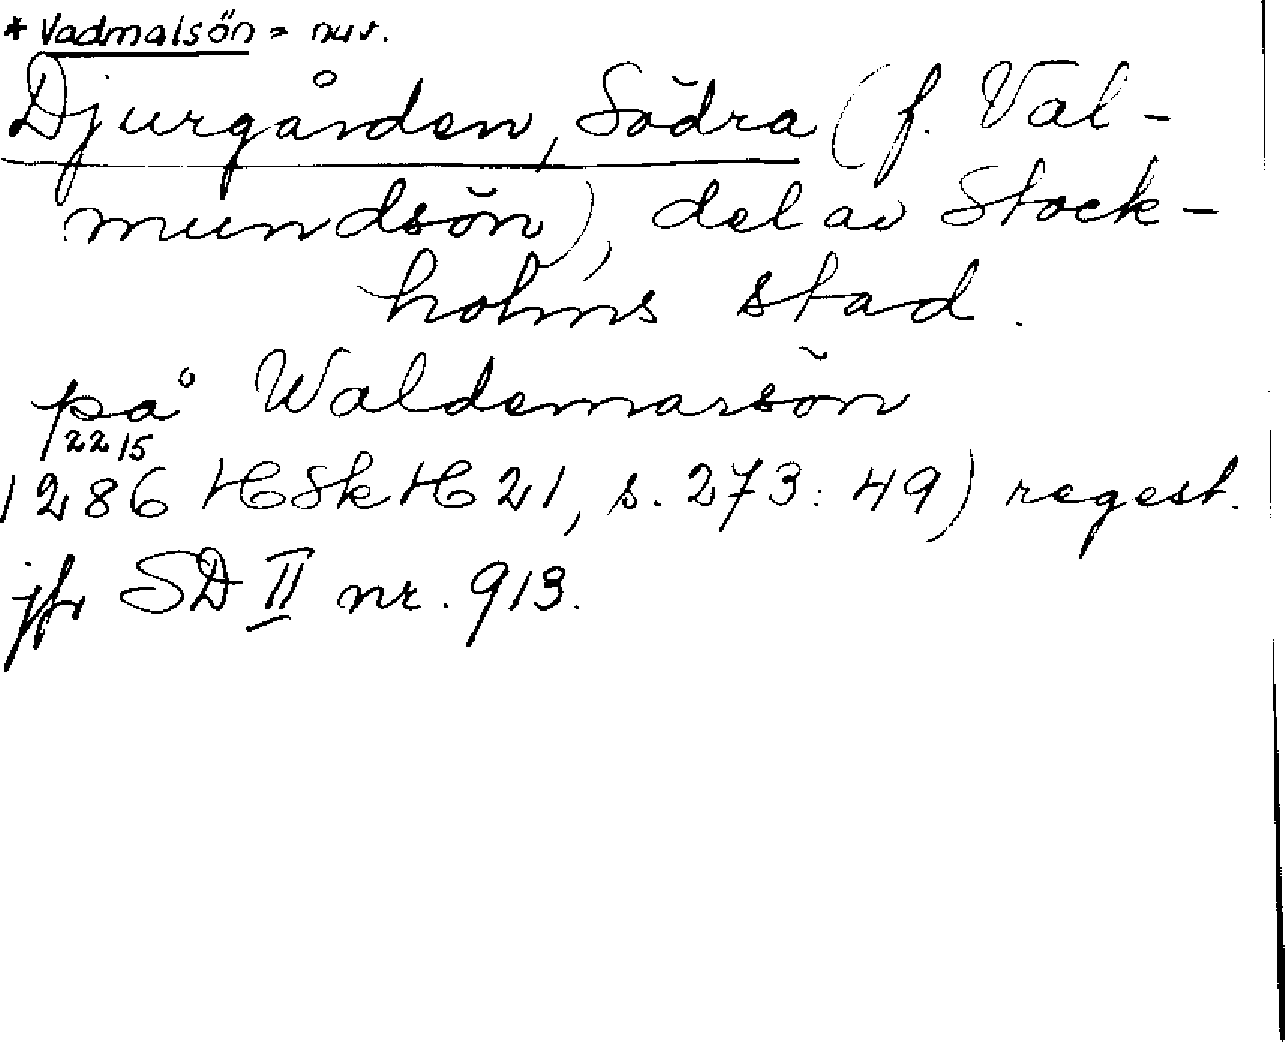 * Vadmalsön = nuv.
Djurgården, Södra (f. Val-
mundsön), del av Stock-
holms stad.
på Waldemarsön
22 15
1286 HSkH 21, s. 273: 49) regest.
jfr SD II nr. 913.